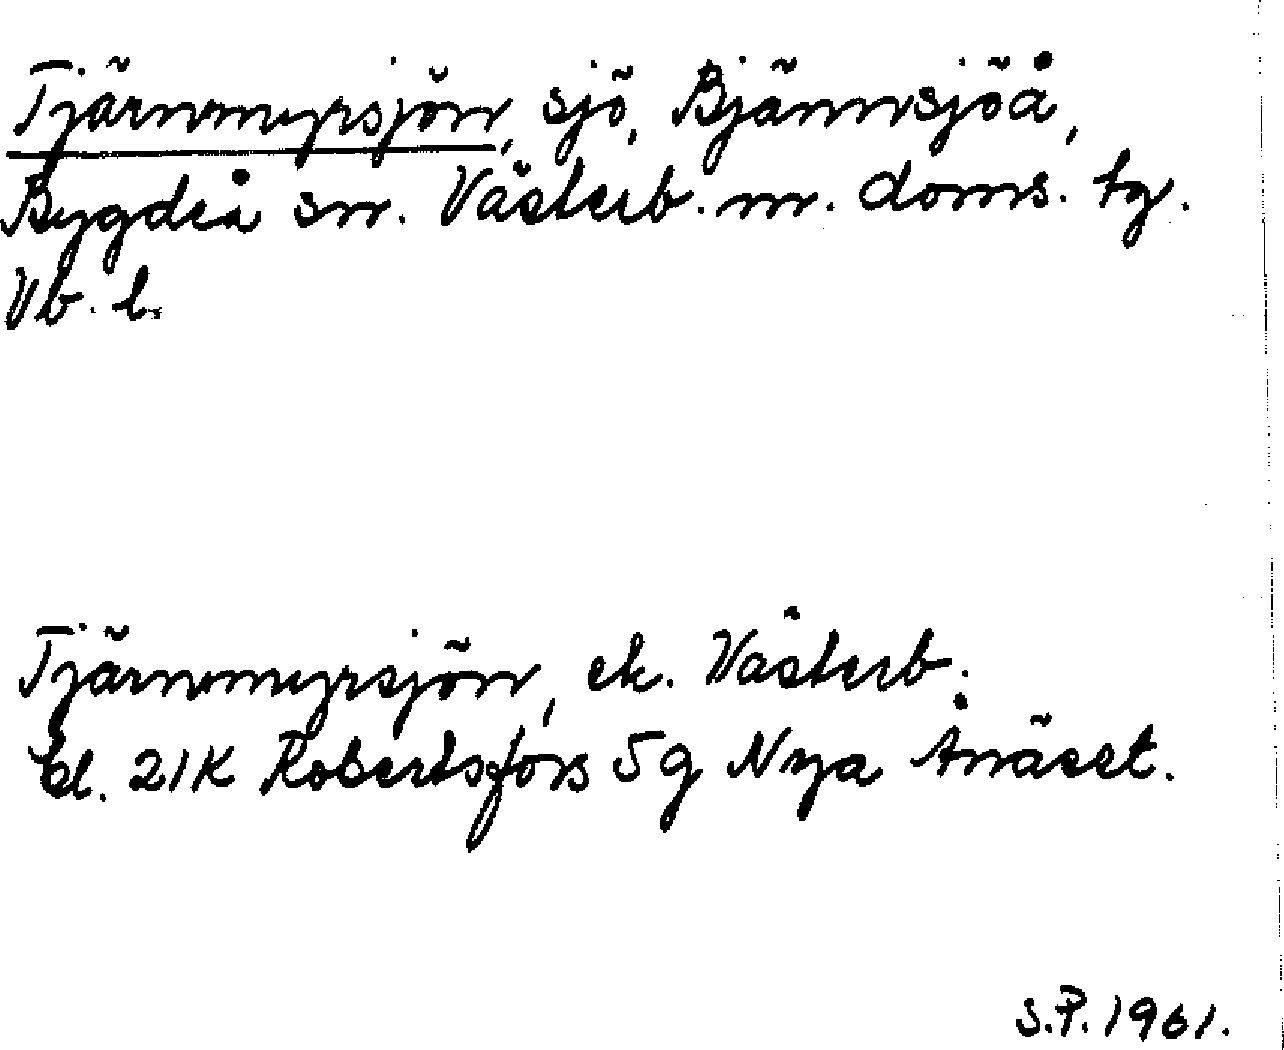 Tjärnmyrsjön, sjö, Bjännsjöå,
Bygdeå sn. Västerb. n. doms. tg.
Vb. l.
Tjärnmyrsjön, ek. Västerb.
bl. 21K Robertsfors 5g Nya Ånäset.
S.P. 1961.